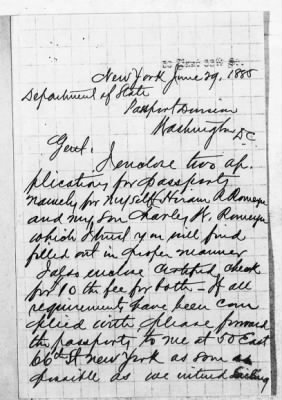 New York June 29, 1885
Department of State
Passport Division
Washington D.C
Gent.
I enclose two ap-
plications for passports
namely for myself Hiram R Romeyn
and my son Charles W. Romeyn
which I trust you will find
filled out in proper manner
I also enclose Certified Check
for 10 the fee for both - If all
requirements have been com
plied with please forward
the passports to me at 50 East
66th St New York as soon as
possible as we intend sailing